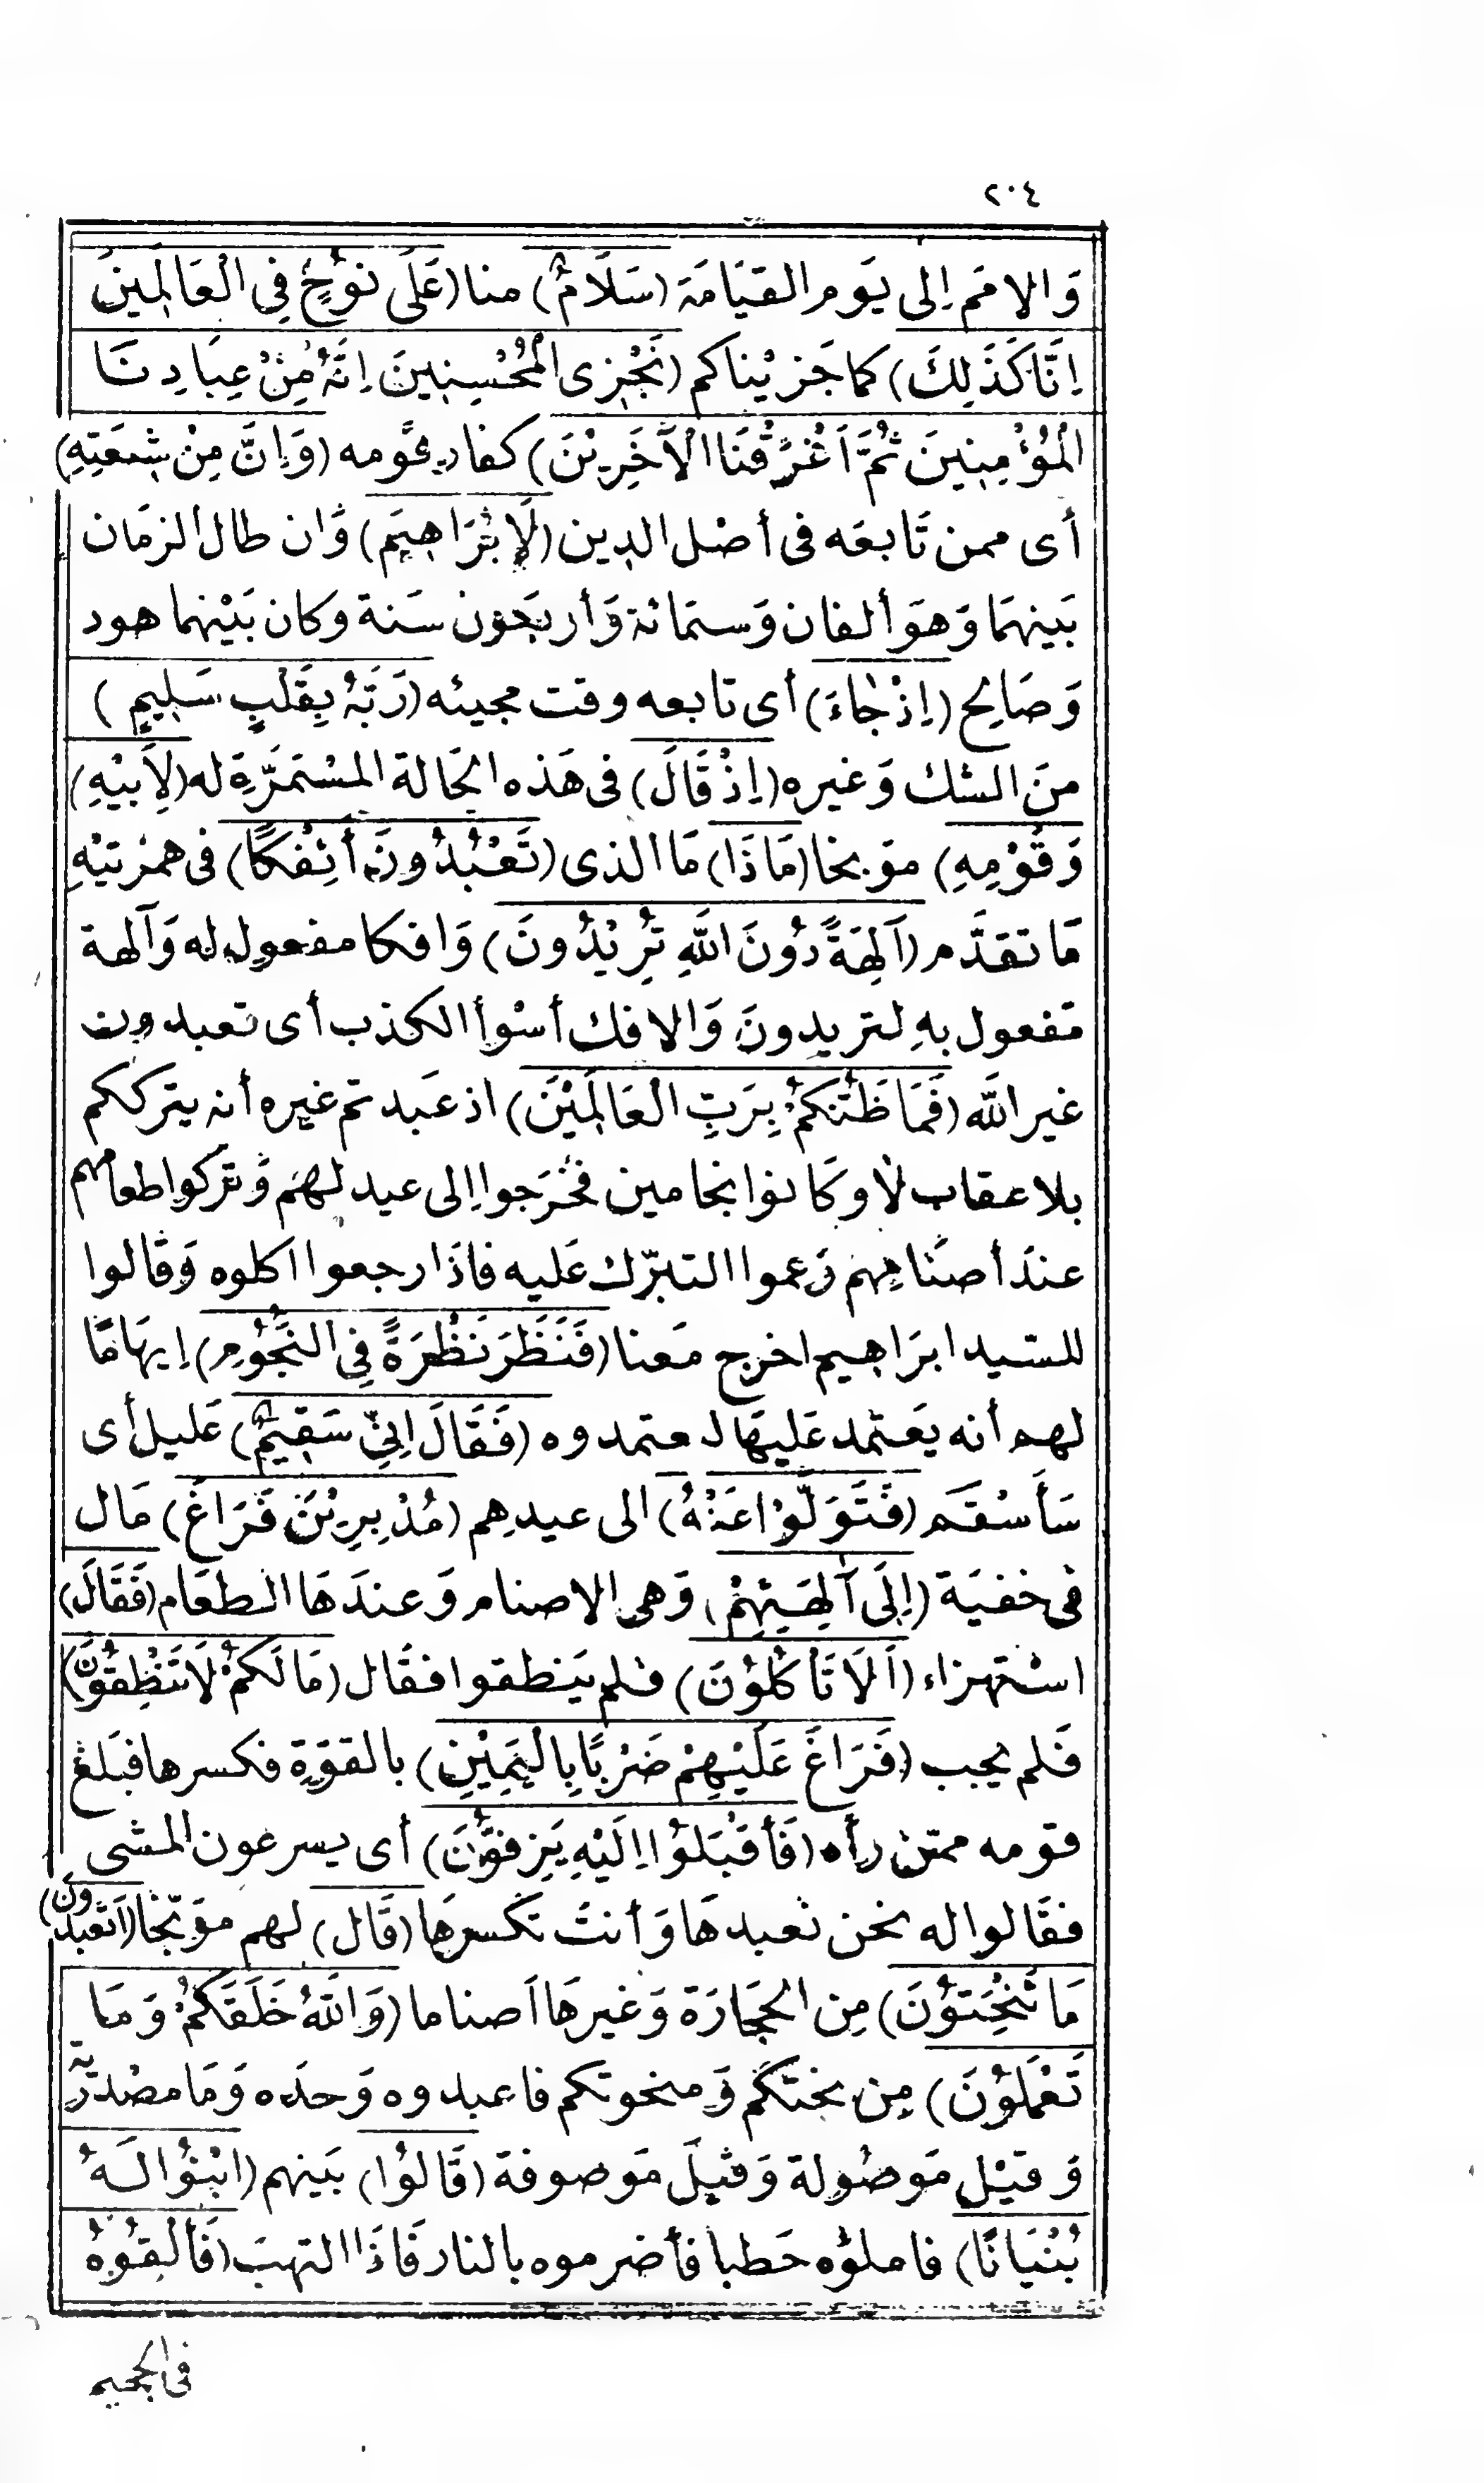 ٢٠٤
وَالامَم اِلى يَوم القيَامَة (سَلَامٌ) منا (عَلَى نُوحٍ فِي الْعَالَمِينَ
اِنَّا كَذَلِكَ) كما جَزيْناكم (نَجْزِى الْمُحْسِنِينَ اِنَّهُ مِنْ عِبَادِنَا
الْمُؤْمِنِينَ ثُمَّ اَغْرَقْنَا الْآخَرِيْنَ) كفار قومه (وَاِنَّ مِنْ شِيعَتِهِ)
أى ممن تَابعَه فى أصْل الدين (لَاِبْرَاهِيمَ) وَان طال الزمَان
بَينهمَا وَهوَ ألفان وَستمائة وَأربَعون سَنة وكان بَيْنهما هود
وَصَالِح (اِذْ جَاءَ) أى تابعه وقت مجيئه (رَبَّهُ بِقَلْبٍ سَلِيمٍ)
منَ الشك وَغيره (اِذْ قَالَ) فى هَذه الحَالة المسْتمَرَّةِ له (لِاَبيْهِ
وَقَوْمِهِ) موَبخا (مَاذَا) مَا الذى (تَعْبُدُونَ أَئِفْكًا) فى همزتيْهِ
مَا تقدَّم (آلِهَةً دُوْنَ اللَّهِ تُرِيْدُونَ) وَافكا مفعول له وَآلهة
مَفعول بهِ لتريدونَ وَالافك أسْوأ الكذب أى تعبدون
غير اللَّه (فَمَا ظَنُّكُمْ بِرَبِّ الْعَالَمِيْنَ) اذ عَبدتم غيره أنه يترككم
بلا عقاب لا وكَانوا نجامين فخرَجوا اِلى عيد لهَم وَتركوا طعامهم
عندَ أصنَامِهم زَعموا التبرّك عَليه فاذَا رجعوا اكلوه وَقالوا
للسّيد ابرَاهيم اخرج مَعنا (فَنَظَرَ نَظْرَةً فِي النُّجُوْمِ) اِيهَامًا
لهم أنه يَعتمد عَليهَا لـعتمدوه (فَقَالَ اِنِّي سَقِيمٌ) عَليل أى
سَأَسْقَم (فَتَوَلَّوْا عَنْهُ) الى عيدِهم (مُدْبِرِيْنَ فَرَاغَ) مَال
فى خفيَة (اِلَى آلِهَتِهِمْ) وَهى الاصنام وَعندَهَا الطعَام (فَقَالَ)
اسْتهزاء (اَلَا تَأْكُلُوْنَ) فلم يَنطقوا فقَال (مَا لَكُمْ لَا تَنْطِقُوْنَ)
فَلم يجب (فَرَاغَ عَلَيْهِمْ ضَرْبًا بِالْيَمِيْنِ) بالقوّةِ فكسرها فبَلغ
قومه ممّن رأه (فَأَقْبَلُوْا اِلَيْهِ يَزِفُّوْنَ) أى يسرعون المشى
فقَالوا له نحن نعبدهَا وَأنتَ تكسرهَا (قَال) لهم موَبّخا (اَتَعْبُدُونَ
مَا تَنْحِتُوْنَ) مِن الحجَارَة وَغيرهَا اَصناما (وَاللَّهُ خَلَقَكُمْ وَمَا
تَعْمَلُوْنَ) مِن نحتكم وَمنحوتكم فاعبدوه وَحدَه وَمَا مصْدريّة
وَقيْل مَوصُولة وَقيلَ مَوصوفة (قَالُوْا) بَينهم (ابْنُوْا لَهُ
بُنْيَانًا) فاملؤه حَطبا فأضرموه بالنار فَاذَا التهبَ (فَأَلْقُوْهُ
فى الجحيم